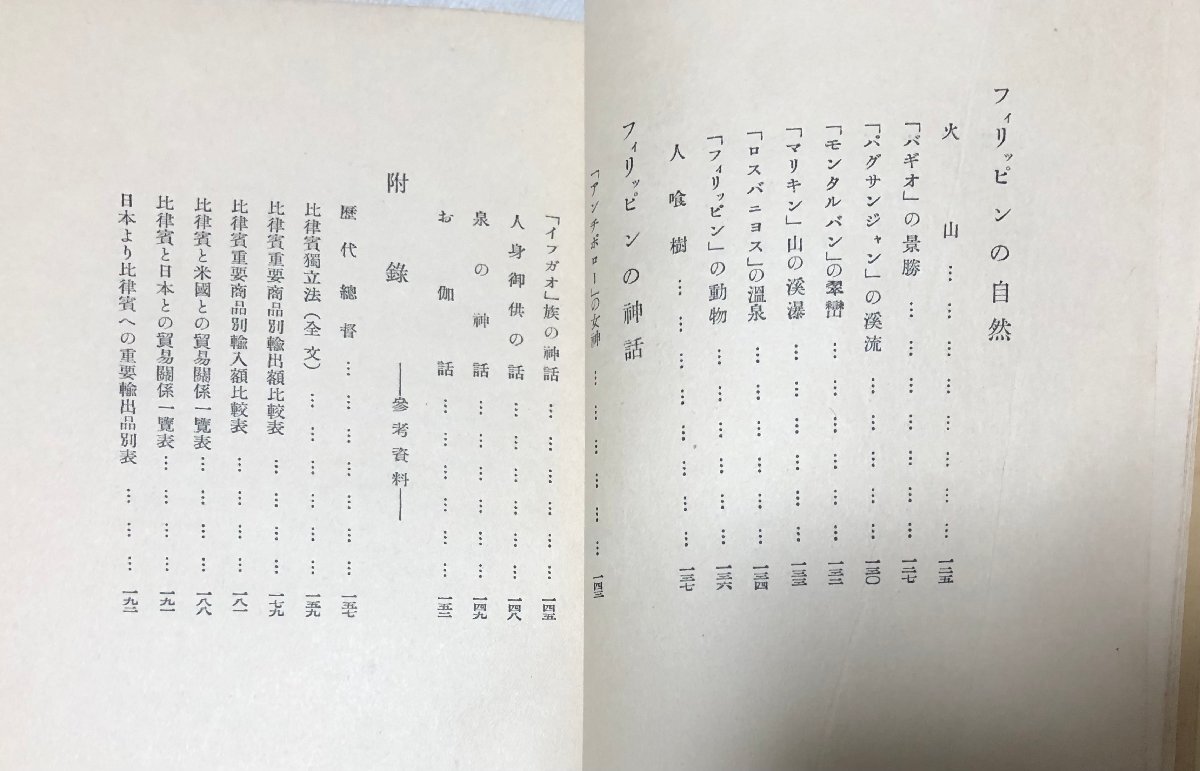 フィリッピンの自然
火山 … … … … … … … 一二五
「バギオ」の景勝 … … … … … 一二七
「パグサンジャン」の溪流 … … … … 一三〇
「モンタルバン」の翠巒 … … … … 一三二
「マリキン」山の溪瀑 … … … … 一三三
「ロスバニヨス」の温泉 … … … … 一三四
「フィリッピン」の動物 … … … … 一三六
人喰樹 … … … … … … 一三七
フィリッピンの神話
「アンチポロー」の女神 … … … … … 一四三
「イフガオ」族の神話 … … … … 一四五
人身御供の話 … … … … … 一四八
泉の神話 … … … … … 一四九
お伽話 … … … … … 一五二
附錄 ――參考資料――
歷代總督 … … … … … … 一五七
比律賓獨立法（全文） … … … … … 一五九
比律賓重要商品別輸出額比較表 … … … … 一七九
比律賓重要商品別輸入額比較表 … … … … 一八一
比律賓と米國との貿易關係一覽表 … … … … 一八八
比律賓と日本との貿易關係一覽表 … … … … 一九一
日本より比律賓への重要輸出品別表 … … … 一九二